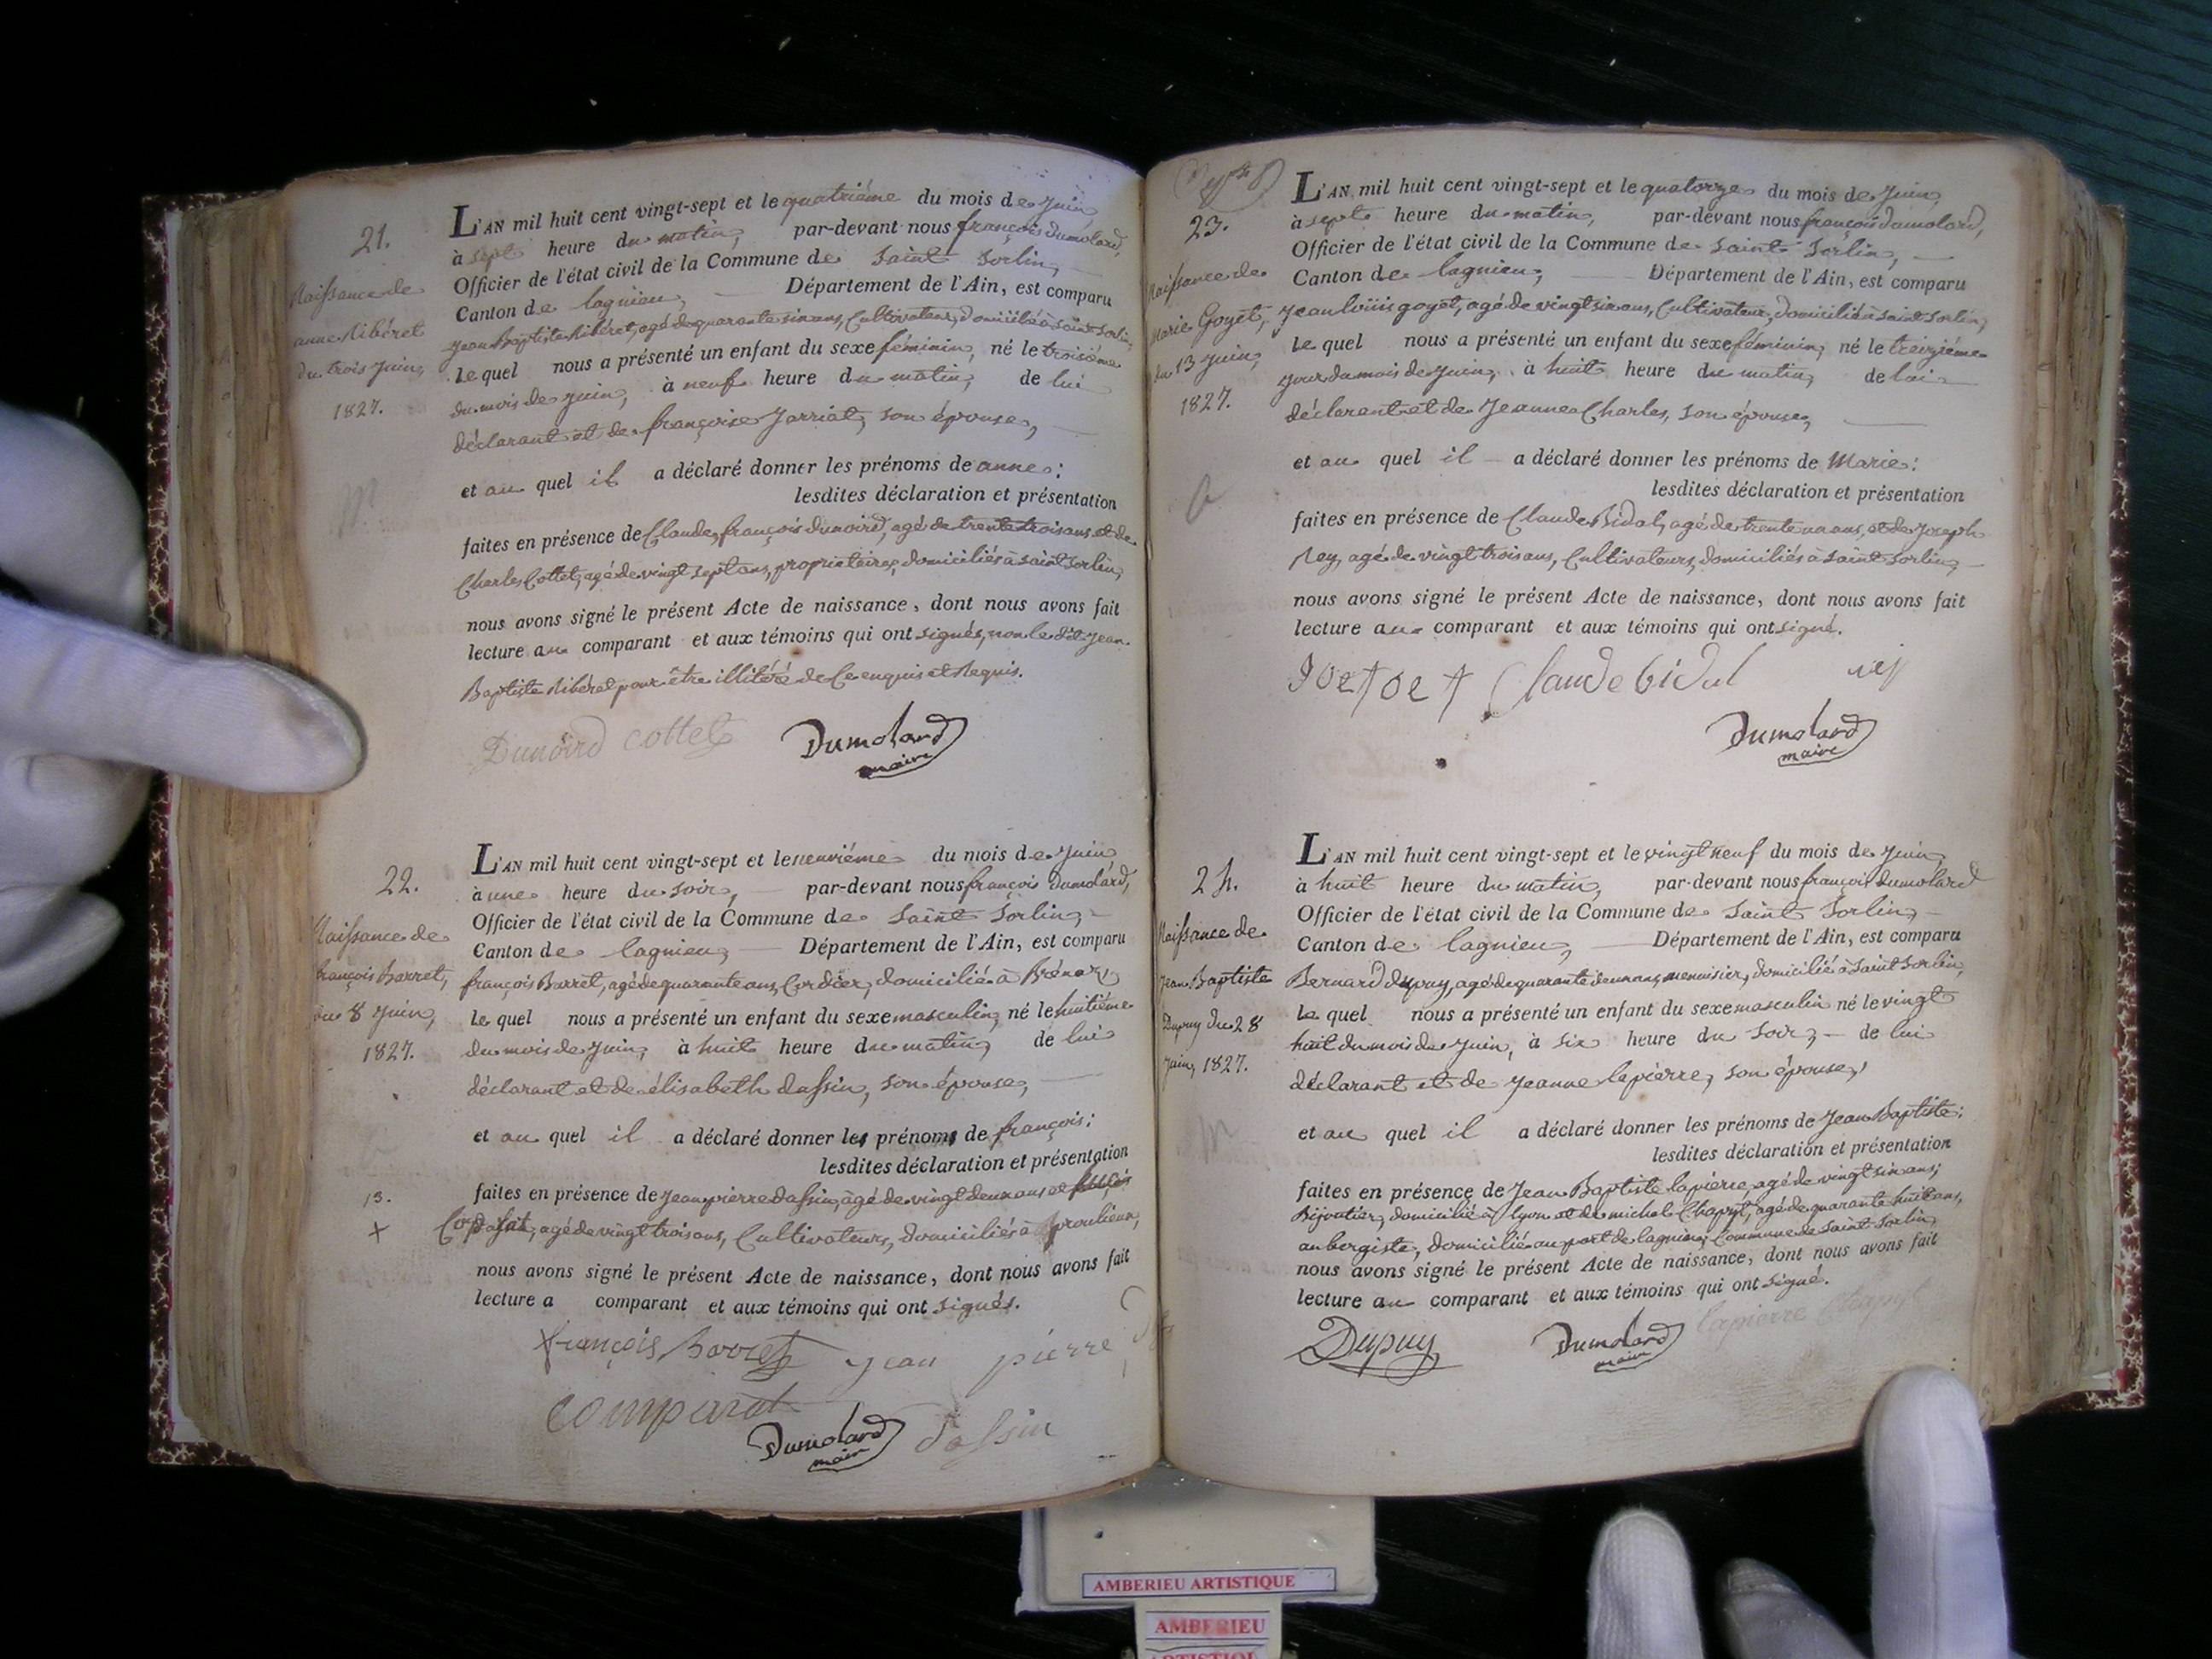 21.
Naissance de
anne Ribéret
du trois Juin,
1827.
L'AN mil huit cent vingt-sept et le quatriéme du mois de Juin,
à sept heure du matin, par-devant nous françois Dumolard,
Officier de l'état civil de la Commune de Saint Sorlin,
Canton de lagnieu, Département de l'Ain, est comparu
Jean Baptiste Ribéret, agé de quarante six ans, Cultivateur, domicilié à Saint Sorlin,
Le quel nous a présenté un enfant du sexe féminin, né le troisiéme
du mois de juin, à neuf heure du matin, de lui
déclarant et de françoise Jarriat, son épouse,
et au quel il a déclaré donner les prénoms de anne;
lesdites déclaration et présentation
faites en présence de Claude françois Dunoird, agé de trente trois ans et de
Charles Cottet, agé de vingt sept ans, propriétaires, domiciliés à Saint Sorlin,
nous avons signé le présent Acte de naissance, dont nous avons fait
lecture au comparant et aux témoins qui ont signés, non le dit Jean
Baptiste Ribéret pour être illitéré de Ce enquis et Requis.
Dunoird Cottet Dumolard
maire
22.
Naissance de
françois Barret,
du 8 Juin,
1827.
L'AN mil huit cent vingt-sept et le neuviéme du mois de Juin,
à une heure du soir, par-devant nous françois Dumolard,
Officier de l'état civil de la Commune de Saint Sorlin,
Canton de lagnieu, Département de l'Ain, est comparu
françois Barret, agé de quarante ans, Cordier, domicilié à Brénaz,
Le quel nous a présenté un enfant du sexe masculin, né le huitiéme
du mois de Juin, à huit heure du matin, de lui
déclarant et de élisabeth dassin, son épouse,
et au quel il a déclaré donner les prénoms de françois;
lesdites déclaration et présentation
13.
faites en présence de Jean pierre dassin, agé de vingt deux ans et
+
agé de vingt trois ans, Cultivateurs, domiciliés à proulieu,
nous avons signé le présent Acte de naissance, dont nous avons fait
lecture a comparant et aux témoins qui ont signés.
françois Barret Jean pierre
comparat
Dumolard dassin
maire
23.
Naissance de
Marie Goyet,
du 13 Juin,
1827.
L'AN mil huit cent vingt-sept et le quatorze du mois de Juin,
à sept heure du matin, par-devant nous françois Dumolard,
Officier de l'état civil de la Commune de Saint Sorlin,
Canton de lagnieu, Département de l'Ain, est comparu
Jean loüis goyet, agé de vingt six ans, Cultivateur, domicilié à Saint Sorlin,
Le quel nous a présenté un enfant du sexe féminin, né le treiziéme
jour du mois de Juin, à huit heure du matin, de lui
déclarent et de Jeanne Charles, son épouse,
et au quel il a déclaré donner les prénoms de Marie;
lesdites déclaration et présentation
faites en présence de Claude Bidal, agé de trente un ans, et de Joseph
Rey, agé de vingt trois ans, Cultivateurs, domiciliés à Saint Sorlin,
nous avons signé le présent Acte de naissance, dont nous avons fait
lecture au comparant et aux témoins qui ont signé.
Claude bidal rey
Dumolard
maire
24.
Naissance de
Jean Baptiste
Dupuy du 28
Juin, 1827.
L'AN mil huit cent vingt-sept et le vingt neuf du mois de Juin,
à huit heure du matin, par-devant nous françois Dumolard
Officier de l'état civil de la Commune de Saint Sorlin,
Canton de lagnieu, Département de l'Ain, est comparu
Bernard dupuy, agé de quarante deux ans, menuisier, domicilié à Saint Sorlin,
Le quel nous a présenté un enfant du sexe masculin né le vingt
huit du mois de Juin, à six heure du soir, de lui
déclarant et de Jeanne lapierre, son épouse,
et au quel il a déclaré donner les prénoms de Jean Baptiste;
lesdites déclaration et présentation
faites en présence de Jean Baptiste lapierre, agé de vingt six ans,
Bijoutier, domicilié à lyon et de michel Chapuy, agé de quarante huit ans,
aubergiste, domicilié au port de lagnieu, Commune de Saint Sorlin,
nous avons signé le présent Acte de naissance, dont nous avons fait
lecture au comparant et aux témoins qui ont signé.
Dupuy Dumolard lapierre Chapuy
maire
AMBERIEU ARTISTIQUE
AMBERIEU
ARTISTIQUE